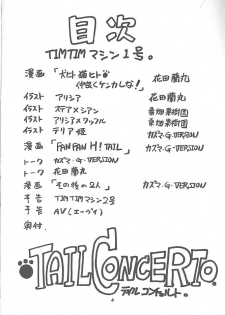 目次
TIMTIMマシン1号。
漫画「犬ヒト猫ヒト 仲良くケンカしな!」 花田蘭丸
イラスト アリシア 花田蘭丸
イラスト ステア×シアン 果樹園
イラスト アリシア×ワッフル 果樹園
イラスト テリア姫 カズマ・G-VERSION
漫画「FAN FAN H! TAIL」 カズマ・G-VERSION
トーク カズマ・G-VERSION
トーク 花田蘭丸
漫画「その後の2人」 カズマ・G-VERSION
予告 TIMTIMマシン2号
予告 AV(エーブイ)
奥付.
TAIL CONCERTO.
テイルコンチェルト。